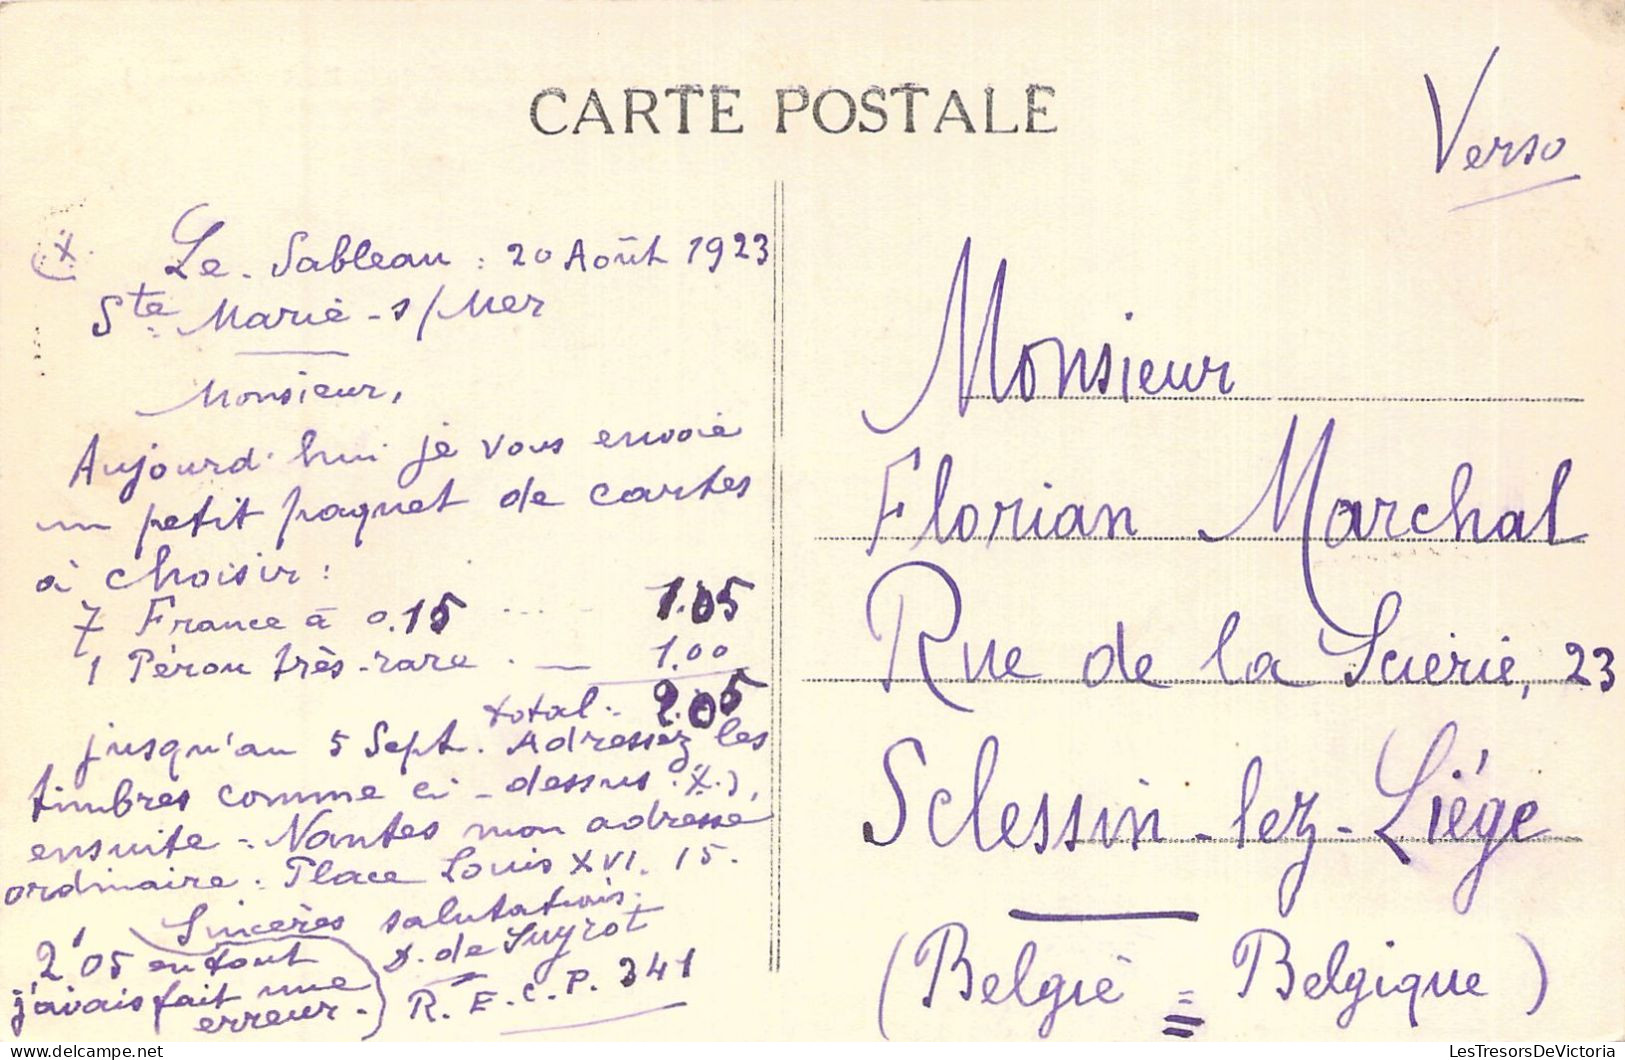 CARTE POSTALE
Verso
(x)
Le Sableau : 20 Août 1923
Ste Marie - s/Mer
Monsieur,
Aujourd'hui je vous envoie
un petit paquet de cartes
à choisir :
7 France à 0.15 ... 1.05
1 Pérou très-rare . — 1.00
total : 2.05
jusqu'au 5 Sept. Adressez les
timbres comme ci-dessus (x),
ensuite - Nantes mon adresse
ordinaire : Place Louis XVI. 15.
Sincères salutations.
D. de Suyrot
R. E. C. P. 341
2'05 en tout
j'avais fait une
erreur.
Monsieur
Florian Marchal
Rue de la Scierie, 23
Sclessin-lez-Liége
(Belgie = Belgique)
LesTresorsDeVictoria.com